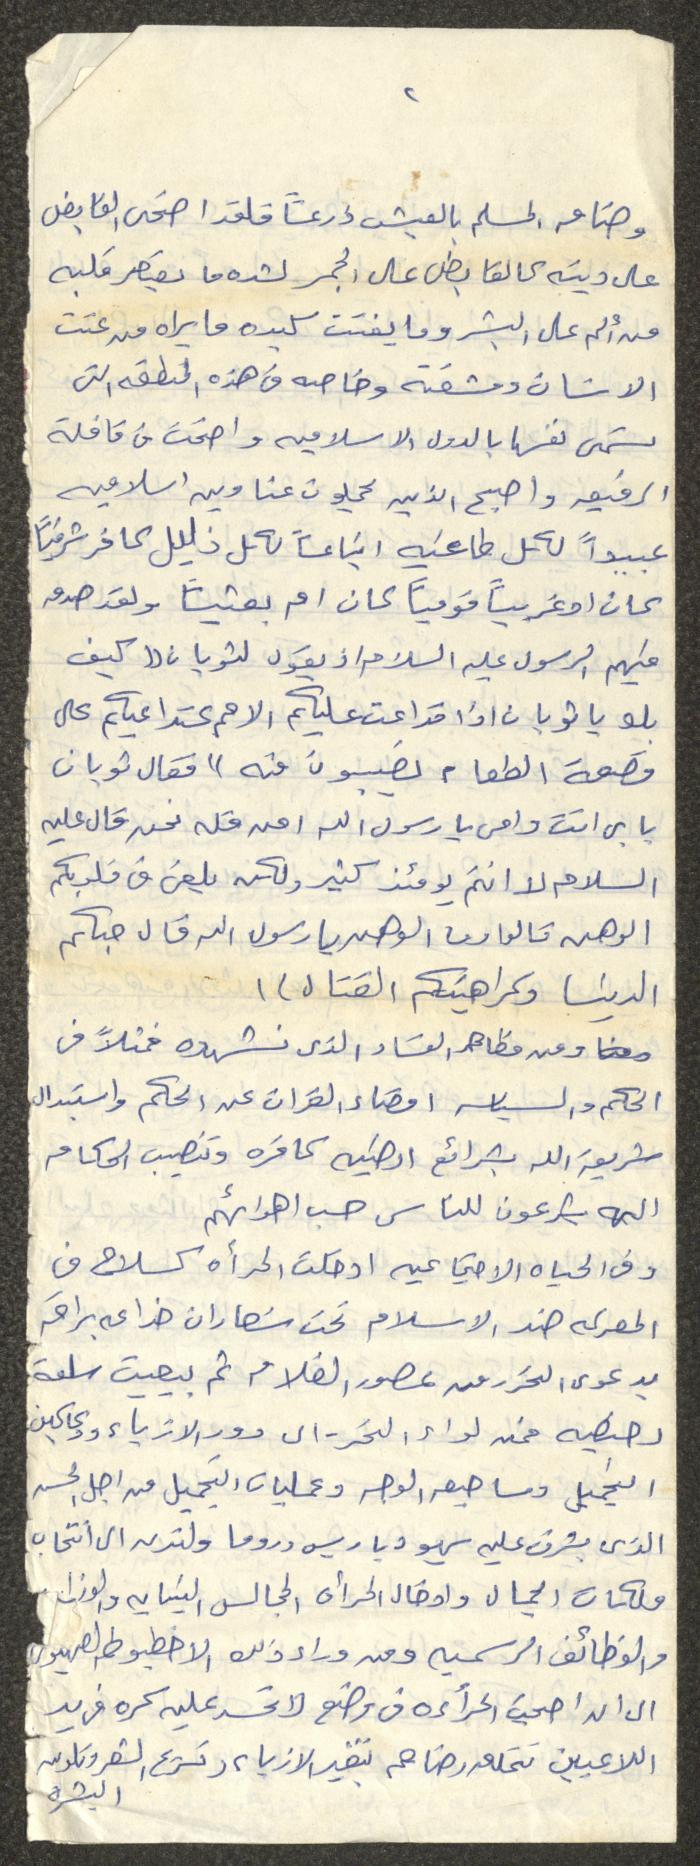 ٢
وضاق المسلم بالعيش ذرعاً فلقد اضحى القابض
على دينه كالقابض على الجمر لشده ما يعتصر قلبه
من ألم على البشر وما يفتت كبده ما يراه من عنت
الانسان ومشقته وخاصه في هذه المنطقه التي
تسمى نفسها بالدول الاسلاميه واضحت في قافلة
الرقيق واصبح الذين يحملون عناوين اسلاميه
عبيداً لكل طاغيه اتباعاً لكل ذليل كافر شرقياً
كان او غربياً قومياً كان ام بعثياً ولقد صدق
فيهم الرسول عليه السلام اذ يقول لثوبان (( كيف
بك يا ثوبان اذا تداعت عليكم الامم كتداعيكم على
قصعة الطعام يصيبون منه )) فقال ثوبان
بابي انت وامي يا رسول الله امن قله نحن قال عليه
السلام لا انتم يومئذ كثير ولكن يلقى في قلوبكم
الوهن قالوا وما الوهن يا رسول الله قال حبكم
الدنيا وكراهيتكم القتال ))
ومن مظاهر الفساد الذي نشهده فمثلاً في
الحكم والسياسه اقصاء القران عن الحكم واستبدال
شريعة الله بشرائع ارضيه كافره وتنصيب الحكام
الهه يشرعون للناس حسب اهوائهم
وفي الحياه الاجتماعيه ادخلت المرأه كسلاح في
المعركه ضد الاسلام تحت شعارات خداعه براقه
بدعوى التحرر من عصور الظلام ثم بيعت سلعة
رخيصه فمن لواء التحرر الى دور الازياء ومكاييج
التجميل ومساحيق الوجه وعمليات التجميل من اجل الحسن
الذي يشرف عليه يهود باريس وروما ولندن الى انتخاب
ملكات الجمال وادخال المرأه المجالس النيابيه والوزارات
والوظائف الرسميه ومن وراء ذلك الاخطبوط الصهيوني
الى ان اصبحت المرأه في وضع لا تحسد عليه كره في يد
اللاعبين تتملق رضاهم بتغير الازياء وتسريح الشعر وتلوين
البشره